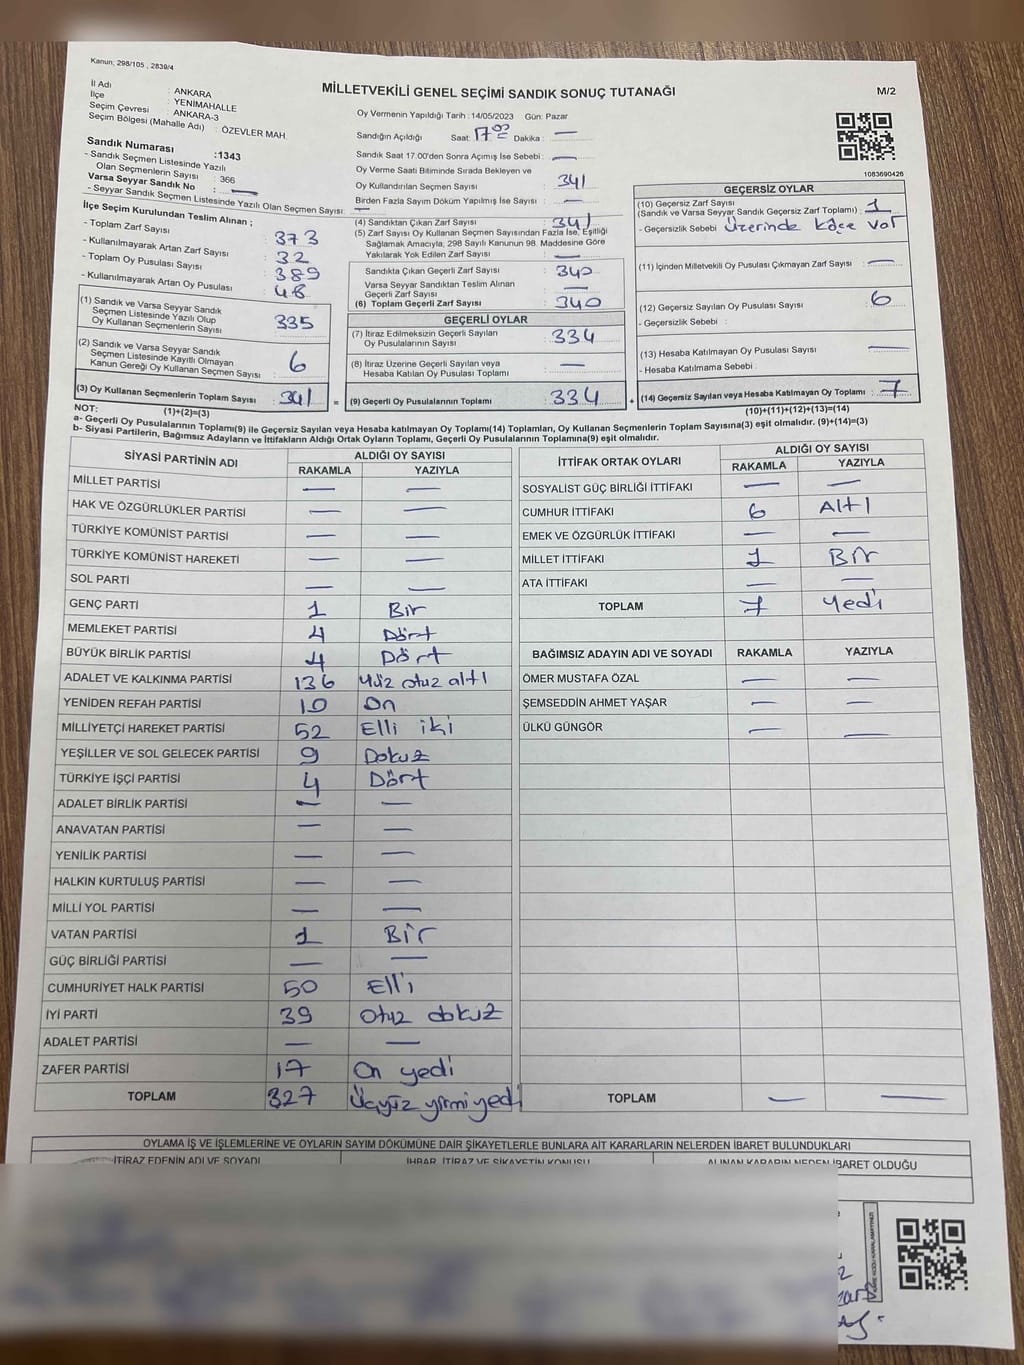 Kanun; 298/105 , 2839/4
MİLLETVEKİLİ GENEL SEÇİMİ SANDIK SONUÇ TUTANAĞI
M/2
İl Adı : ANKARA
İlçe : YENİMAHALLE
Seçim Çevresi : ANKARA-3
Seçim Bölgesi (Mahalle Adı) : ÖZEVLER MAH.
Sandık Numarası :1343
- Sandık Seçmen Listesinde Yazılı
Olan Seçmenlerin Sayısı : 366
Varsa Seyyar Sandık No : —
- Seyyar Sandık Seçmen Listesinde Yazılı Olan Seçmen Sayısı: —
Oy Vermenin Yapıldığı Tarih : 14/05/2023 Gün: Pazar
Sandığın Açıldığı Saat: 17 00 Dakika : —
Sandık Saat 17.00'den Sonra Açımış İse Sebebi : —
Oy Verme Saati Bitiminde Sırada Bekleyen ve
Oy Kullandırılan Seçmen Sayısı : 341
Birden Fazla Sayım Döküm Yapılmış İse Sayısı : —
1083690426
İlçe Seçim Kurulundan Teslim Alınan ;
- Toplam Zarf Sayısı : 373
- Kullanılmayarak Artan Zarf Sayısı : 32
- Toplam Oy Pusulası Sayısı : 389
- Kullanılmayarak Artan Oy Pusulası : 48
(1) Sandık ve Varsa Seyyar Sandık
Seçmen Listesinde Yazılı Olup
Oy Kullanan Seçmenlerin Sayısı : 335
(2) Sandık ve Varsa Seyyar Sandık
Seçmen Listesinde Kayıtlı Olmayan
Kanun Gereği Oy Kullanan Seçmen Sayısı : 6
(3) Oy Kullanan Seçmenlerin Toplam Sayısı : 341 =
(4) Sandıktan Çıkan Zarf Sayısı : 341
(5) Zarf Sayısı Oy Kullanan Seçmen Sayısından Fazla İse, Eşitliği
Sağlamak Amacıyla, 298 Sayılı Kanunun 98. Maddesine Göre
Yakılarak Yok Edilen Zarf Sayısı : —
Sandıkta Çıkan Geçerli Zarf Sayısı : 340
Varsa Seyyar Sandıktan Teslim Alınan
Geçerli Zarf Sayısı : —
(6) Toplam Geçerli Zarf Sayısı : 340
GEÇERLİ OYLAR
(7) İtiraz Edilmeksizin Geçerli Sayılan
Oy Pusulalarının Sayısı : 334
(8) İtiraz Üzerine Geçerli Sayılan veya
Hesaba Katılan Oy Pusulası Toplamı : —
(9) Geçerli Oy Pusulalarının Toplamı : 334 +
GEÇERSİZ OYLAR
(10) Geçersiz Zarf Sayısı
(Sandık ve Varsa Seyyar Sandık Geçersiz Zarf Toplamı) : 1
- Geçersizlik Sebebi : Üzerinde kaşe var
(11) İçinden Milletvekili Oy Pusulası Çıkmayan Zarf Sayısı : —
(12) Geçersiz Sayılan Oy Pusulası Sayısı : 6
- Geçersizlik Sebebi :
(13) Hesaba Katılmayan Oy Pusulası Sayısı : —
- Hesaba Katılmama Sebebi
(14) Geçersiz Sayılan veya Hesaba Katılmayan Oy Toplamı : 7
NOT: (1)+(2)=(3)
(10)+(11)+(12)+(13)=(14)
a- Geçerli Oy Pusulalarının Toplamı(9) ile Geçersiz Sayılan veya Hesaba katılmayan Oy Toplamı(14) Toplamları, Oy Kullanan Seçmenlerin Toplam Sayısına(3) eşit olmalıdır. (9)+(14)=(3)
b- Siyasi Partilerin, Bağımsız Adayların ve İttifakların Aldığı Ortak Oyların Toplamı, Geçerli Oy Pusulalarının Toplamına(9) eşit olmalıdır.
SİYASİ PARTİNİN ADI ALDIĞI OY SAYISI
RAKAMLA YAZIYLA
MİLLET PARTİSİ — —
HAK VE ÖZGÜRLÜKLER PARTİSİ — —
TÜRKİYE KOMÜNİST PARTİSİ — —
TÜRKİYE KOMÜNİST HAREKETİ — —
SOL PARTİ — —
GENÇ PARTİ 1 Bir
MEMLEKET PARTİSİ 4 Dört
BÜYÜK BİRLİK PARTİSİ 4 Dört
ADALET VE KALKINMA PARTİSİ 136 Yüz otuz altı
YENİDEN REFAH PARTİSİ 10 On
MİLLİYETÇİ HAREKET PARTİSİ 52 Elli iki
YEŞİLLER VE SOL GELECEK PARTİSİ 9 Dokuz
TÜRKİYE İŞÇİ PARTİSİ 4 Dört
ADALET BİRLİK PARTİSİ — —
ANAVATAN PARTİSİ — —
YENİLİK PARTİSİ — —
HALKIN KURTULUŞ PARTİSİ — —
MİLLİ YOL PARTİSİ — —
VATAN PARTİSİ 1 Bir
GÜÇ BİRLİĞİ PARTİSİ — —
CUMHURİYET HALK PARTİSİ 50 Elli
İYİ PARTİ 39 Otuz dokuz
ADALET PARTİSİ — —
ZAFER PARTİSİ 17 On yedi
TOPLAM 327 Üçyüz yirmi yedi
İTTİFAK ORTAK OYLARI ALDIĞI OY SAYISI
RAKAMLA YAZIYLA
SOSYALİST GÜÇ BİRLİĞİ İTTİFAKI — —
CUMHUR İTTİFAKI 6 Altı
EMEK VE ÖZGÜRLÜK İTTİFAKI — —
MİLLET İTTİFAKI 1 Bir
ATA İTTİFAKI — —
TOPLAM 7 Yedi
BAĞIMSIZ ADAYIN ADI VE SOYADI RAKAMLA YAZIYLA
ÖMER MUSTAFA ÖZAL — —
ŞEMSEDDİN AHMET YAŞAR — —
ÜLKÜ GÜNGÖR — —
TOPLAM — —
OYLAMA İŞ VE İŞLEMLERİNE VE OYLARIN SAYIM DÖKÜMÜNE DAİR ŞİKAYETLERLE BUNLARA AİT KARARLARIN NELERDEN İBARET BULUNDUKLARI
İTİRAZ EDENİN ADI VE SOYADI İHBAR, İTİRAZ VE ŞİKAYETİN KONUSU ALINAN KARARIN NEDEN İBARET OLDUĞU